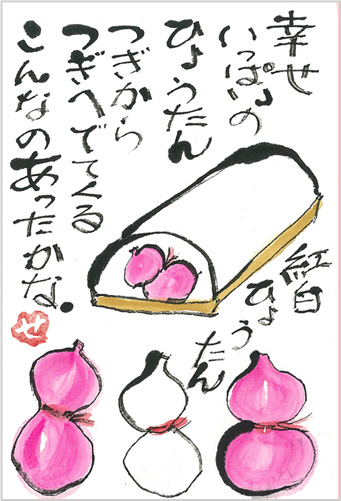 幸せ
いっぱいの
ひょうたん
つぎから
つぎへでてくる
こんなのあったかな。
紅白
ひょうたん
せ